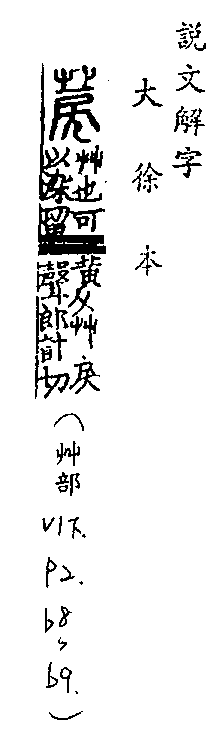 説文解字
大徐本
䓞
艸也可
以染留
黃从艸戾
聲郎計切
(艸部 V1下. P2. b8, b9.)